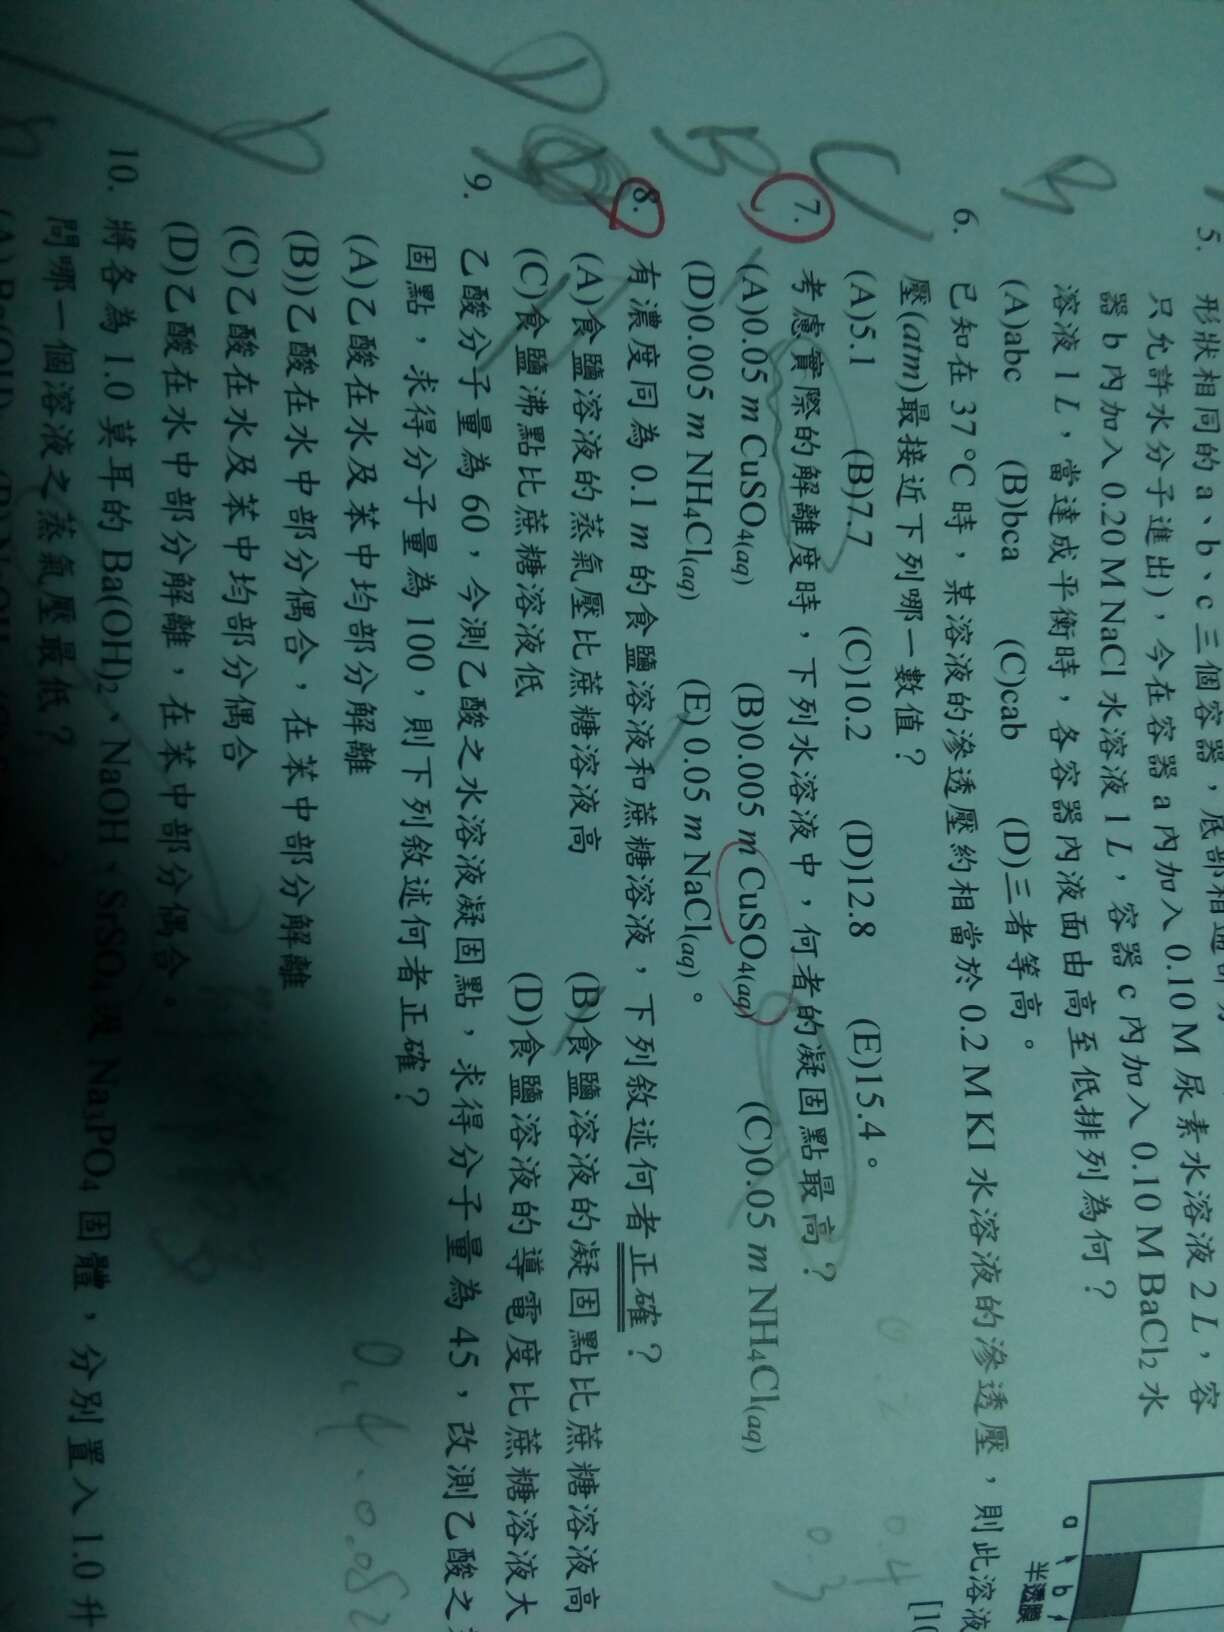 5. 形狀相同的 a、b、c 三個容器,底部相通
只允許水分子進出),今在容器 a 內加入 0.10 M 尿素水溶液 2 L,容
器 b 內加入 0.20 M NaCl 水溶液 1 L,容器 c 內加入 0.10 M BaCl2 水
溶液 1 L,當達成平衡時,各容器內液面由高至低排列為何?
(A)abc (B)bca (C)cab (D)三者等高。
a b
半透膜
B
6. 已知在 37°C 時,某溶液的滲透壓約相當於 0.2 M KI 水溶液的滲透壓,則此溶液
壓(atm)最接近下列哪一數值? [10
(A)5.1 (B)7.7 (C)10.2 (D)12.8 (E)15.4。
C
0.2 0.4
7. 考慮實際的解離度時,下列水溶液中,何者的凝固點最高?
0.3
(A)0.05 m CuSO4(aq) (B)0.005 m CuSO4(aq) (C)0.05 m NH4Cl(aq)
(D)0.005 m NH4Cl(aq) (E) 0.05 m NaCl(aq)。
B
8. 有濃度同為 0.1 m 的食鹽溶液和蔗糖溶液,下列敘述何者正確?
(A)食鹽溶液的蒸氣壓比蔗糖溶液高 (B)食鹽溶液的凝固點比蔗糖溶液高
(C)食鹽沸點比蔗糖溶液低 (D)食鹽溶液的導電度比蔗糖溶液大
D
9. 乙酸分子量為 60,今測乙酸之水溶液凝固點,求得分子量為 45,改測乙酸之
固點,求得分子量為 100,則下列敘述何者正確?
(A)乙酸在水及苯中均部分解離
0.4.0.082
(B))乙酸在水中部分偶合,在苯中部分解離
(C)乙酸在水及苯中均部分偶合
(D)乙酸在水中部分解離,在苯中部分偶合。
D
10. 將各為 1.0 莫耳的 Ba(OH)2、NaOH、SrSO4 及 Na3PO4 固體,分別置入 1.0 升
問哪一個溶液之蒸氣壓最低?